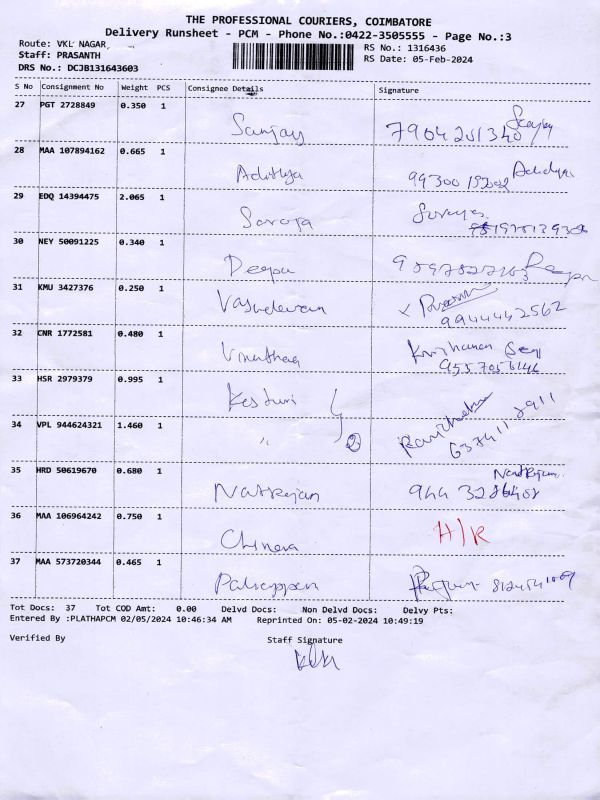 THE PROFESSIONAL COURIERS, COIMBATORE
Delivery Runsheet - PCM - Phone No.:0422-3505555 - Page No.:3
Route: VKL NAGAR,
RS No.: 1316436
Staff: PRASANTH
RS Date: 05-Feb-2024
DRS No.: DCJB131643603
S No Consignment No Weight PCS Consignee Details Signature
27 PGT 2728849 0.350 1 Sanjay 7904201340
28 MAA 107894162 0.665 1 Adithya
29 EDQ 14394475 2.065 1 Saroja
30 NEY 50091225 0.340 1 Deepa
31 KMU 3427376 0.250 1 Vasudevan
9944442562
32 CNR 1772581 0.480 1
33 HSR 2979379 0.995 1 Kasturi
34 VPL 944624321 1.460 1 〃 2
35 HRD 50619670 0.680 1 Natrajan Natrajan
36 MAA 106964242 0.750 1 H/R
37 MAA 573720344 0.465 1
Tot Docs: 37 Tot COD Amt: 0.00 Delvd Docs: Non Delvd Docs: Delvy Pts:
Entered By :PLATHAPCM 02/05/2024 10:46:34 AM Reprinted On: 05-02-2024 10:49:19
Verified By Staff Signature